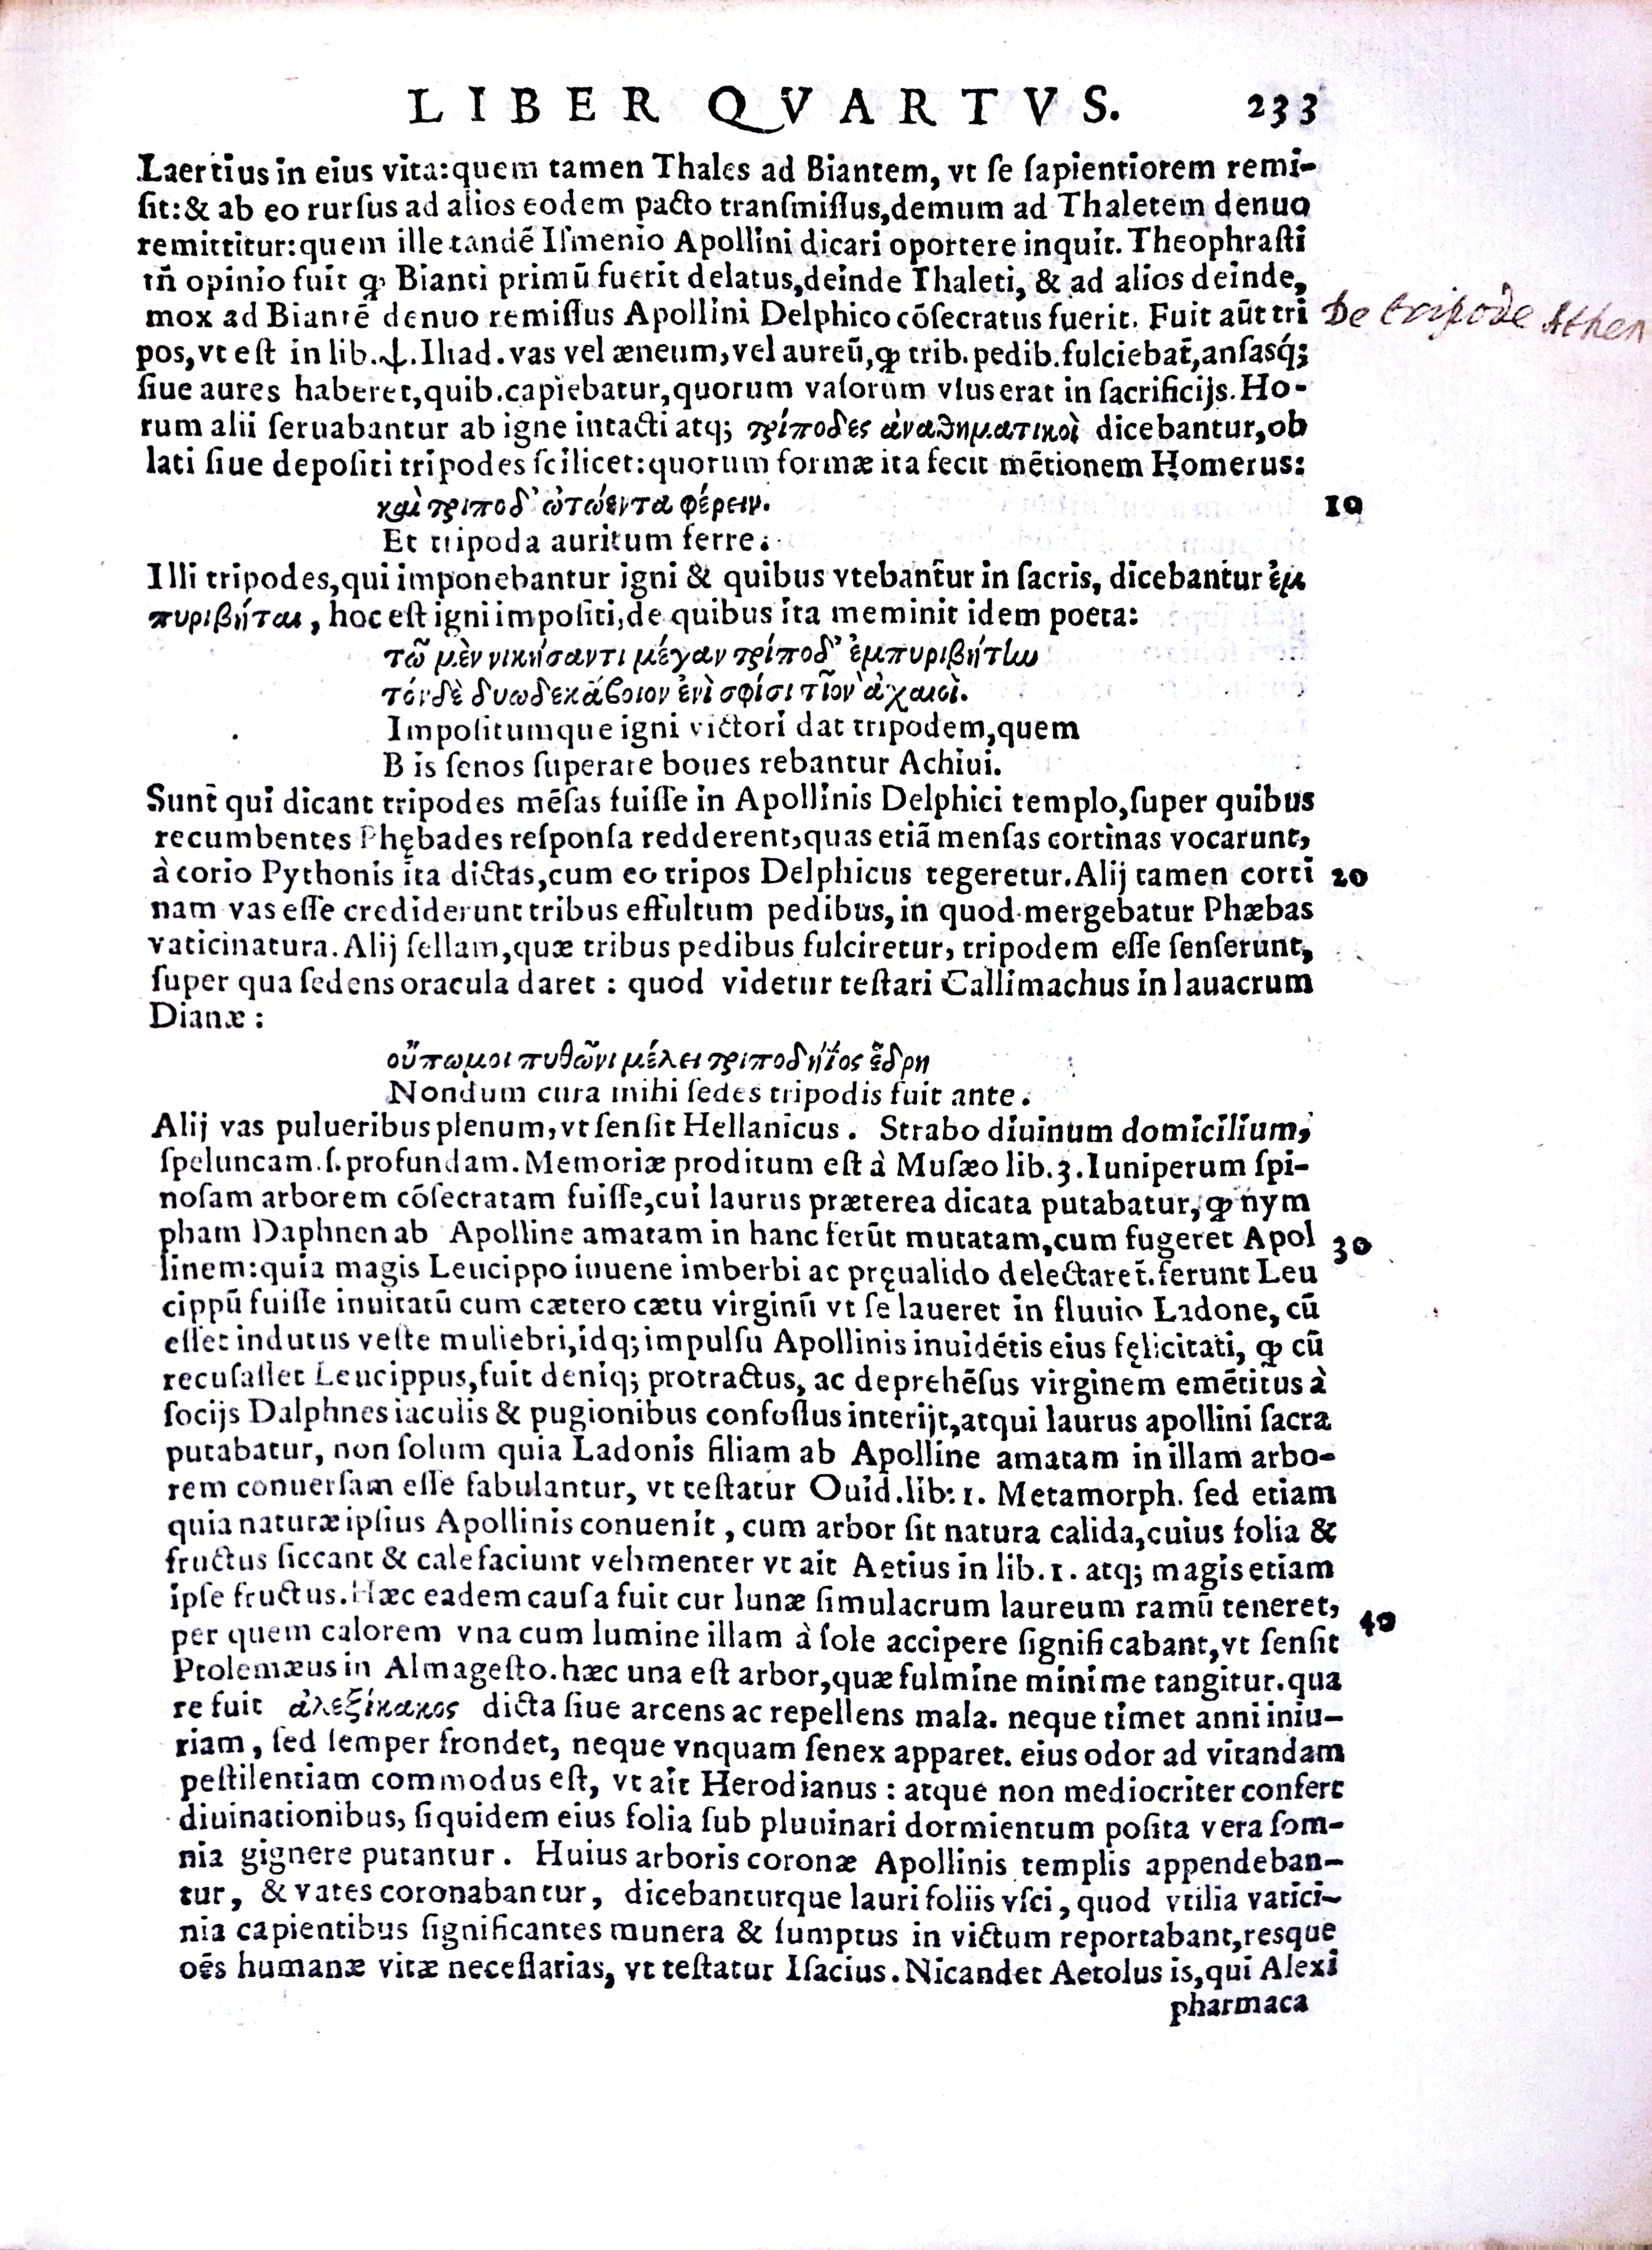 LIBER QVARTVS. 233
Laertius in eius vita:quem tamen Thales ad Biantem, vt ſe ſapientiorem remi-
ſit:& ab eo rurſus ad alios eodem pacto tranſmiſſus,demum ad Thaletem denuo
remittitur:quem ille tandē Iſmenio Apollini dicari oportere inquit. Theophraſti
tñ opinio fuit ꝙ Bianti primū fuerit delatus,deinde Thaleti, & ad alios deinde,
mox ad Biantē denuo remiſſus Apollini Delphico cōſecratus fuerit. Fuit aūt tri
De tripode Athen
pos,vt eſt in lib.ψ.Iliad.vas vel æneum,vel aureū,ꝙ trib.pedib.fulciebat̄,anſasq́;
ſiue aures haberet,quib.capiebatur,quorum vaſorum vſus erat in ſacrificijs.Ho-
rum alii ſeruabantur ab igne intacti atq; τρίποδες ἀναθηματικοὶ dicebantur,ob
lati ſiue depoſiti tripodes ſcilicet:quorum formæ ita fecit mētionem Homerus:
καὶ τριποδ᾽ ὠτώεντα φέρειν. 10
Et tripoda auritum ferre.
Illi tripodes,qui imponebantur igni & quibus vtebantur in ſacris, dicebantur ἐμ
πυριβήται, hoc eſt igni impoſiti,de quibus ita meminit idem poeta:
τῶ μὲν νικήσαντι μέγαν τρίποδ᾽ ἐμπυριβήτίω
τόνδὲ δυωδεκάβοιον ἐνὶ σφίσι τῖον ἀχαιοὶ.
Impoſitumque igni victori dat tripodem,quem
B is ſenos ſuperare boues rebantur Achiui.
Sunt qui dicant tripodes mēſas fuiſſe in Apollinis Delphici templo,ſuper quibus
recumbentes Phębades reſponſa redderent,quas etiā menſas cortinas vocarunt,
à corio Pythonis ita dictas,cum eo tripos Delphicus tegeretur.Alij tamen corti 20
nam vas eſſe crediderunt tribus effultum pedibus, in quod mergebatur Phæbas
vaticinatura.Alij ſellam,quæ tribus pedibus fulciretur, tripodem eſſe ſenſerunt,
ſuper qua ſedens oracula daret : quod videtur teſtari Callimachus in lauacrum
Dianæ :
οὔπωμοι πυθῶνι μέλει τριποδήϊος ἕδρη
Nondum cura mihi ſedes tripodis fuit ante.
Alij vas pulueribus plenum, vt ſenſit Hellanicus. Strabo diuinum domicilium,
ſpeluncam.ſ.profundam.Memoriæ proditum eſt à Muſæo lib.3.Iuniperum ſpi-
noſam arborem cōſecratam fuiſſe,cui laurus præterea dicata putabatur, ꝙ nym
pham Daphnen ab Apolline amatam in hanc ferūt mutatam,cum fugeret Apol 30
linem:quia magis Leucippo iuuene imberbi ac pręualido delectaret̄.ferunt Leu
cippū fuiſſe inuitatū cum cætero cætu virginū vt ſe laueret in fluuio Ladone, cū
eſſet indutus veſte muliebri,idq; impulſu Apollinis inuidétis eius fęlicitati, ꝙ cū
recuſaſſet Leucippus,fuit deniq; protractus, ac deprehēſus virginem emētitus à
ſocijs Dalphnes iaculis & pugionibus confoſſus interijt,atqui laurus apollini ſacra
putabatur, non ſolum quia Ladonis filiam ab Apolline amatam in illam arbo-
rem conuerſam eſſe fabulantur, vt teſtatur Ouid.lib: 1. Metamorph. ſed etiam
quia naturæ ipſius Apollinis conuenit , cum arbor ſit natura calida,cuius folia &
fructus ſiccant & calefaciunt vehmenter vt ait Aetius in lib.1. atq; magis etiam
ipſe fructus.Hæc eadem cauſa fuit cur lunæ ſimulacrum laureum ramū teneret, 40
per quem calorem vna cum lumine illam à ſole accipere ſignifi cabant,vt ſenſit
Ptolemæus in Almageſto.hæc una eſt arbor,quæ fulmine minime tangitur.qua
re fuit ἀλεξίκακος dicta ſiue arcens ac repellens mala. neque timet anni iniu-
riam , ſed ſemper frondet, neque vnquam ſenex apparet. eius odor ad vitandam
peſtilentiam commodus eſt, vt ait Herodianus : atque non mediocriter confert
diuinationibus, ſiquidem eius folia ſub pluuinari dormientum poſita vera ſom-
nia gignere putantur. Huius arboris coronæ Apollinis templis appendeban-
tur, & vates coronabantur, dicebanturque lauri foliis vſci, quod vtilia vatici-
nia capientibus ſignificantes munera & ſumptus in victum reportabant,resque
oēs humanæ vitæ neceſſarias, vt teſtatur Iſacius.Nicander Aetolus is,qui Alexi
pharmaca